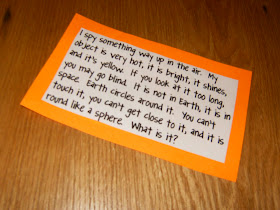 I spy something way up in the air. My
object is very hot, it is bright, it shines,
and it's yellow. If you look at it too long,
you may go blind. It is not in earth, it is in
space. Earth circles around it. You can't
touch it, you can't get close to it, and it is
round like a sphere. What is it?